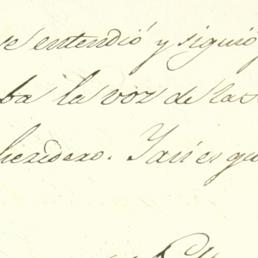 se entendió y siguió
ba la voz de la
heredero. Y así es qu